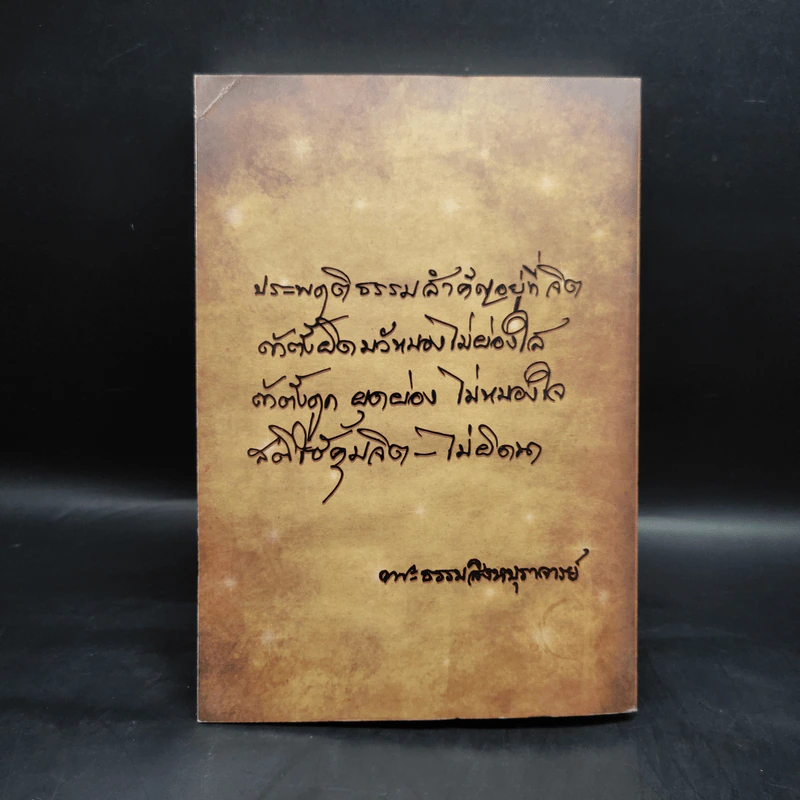 ประพฤติธรรมสำคัญอยู่ที่จิต
ถ้าตั้งผิด มัวหมอง ไม่ผ่องใส
ถ้าตั้งถูก ผุดผ่อง ไม่หมองใจ
สติใช้คุ้มจิต-ไม่ผิดนา
พระธรรมสิงหบุราจารย์